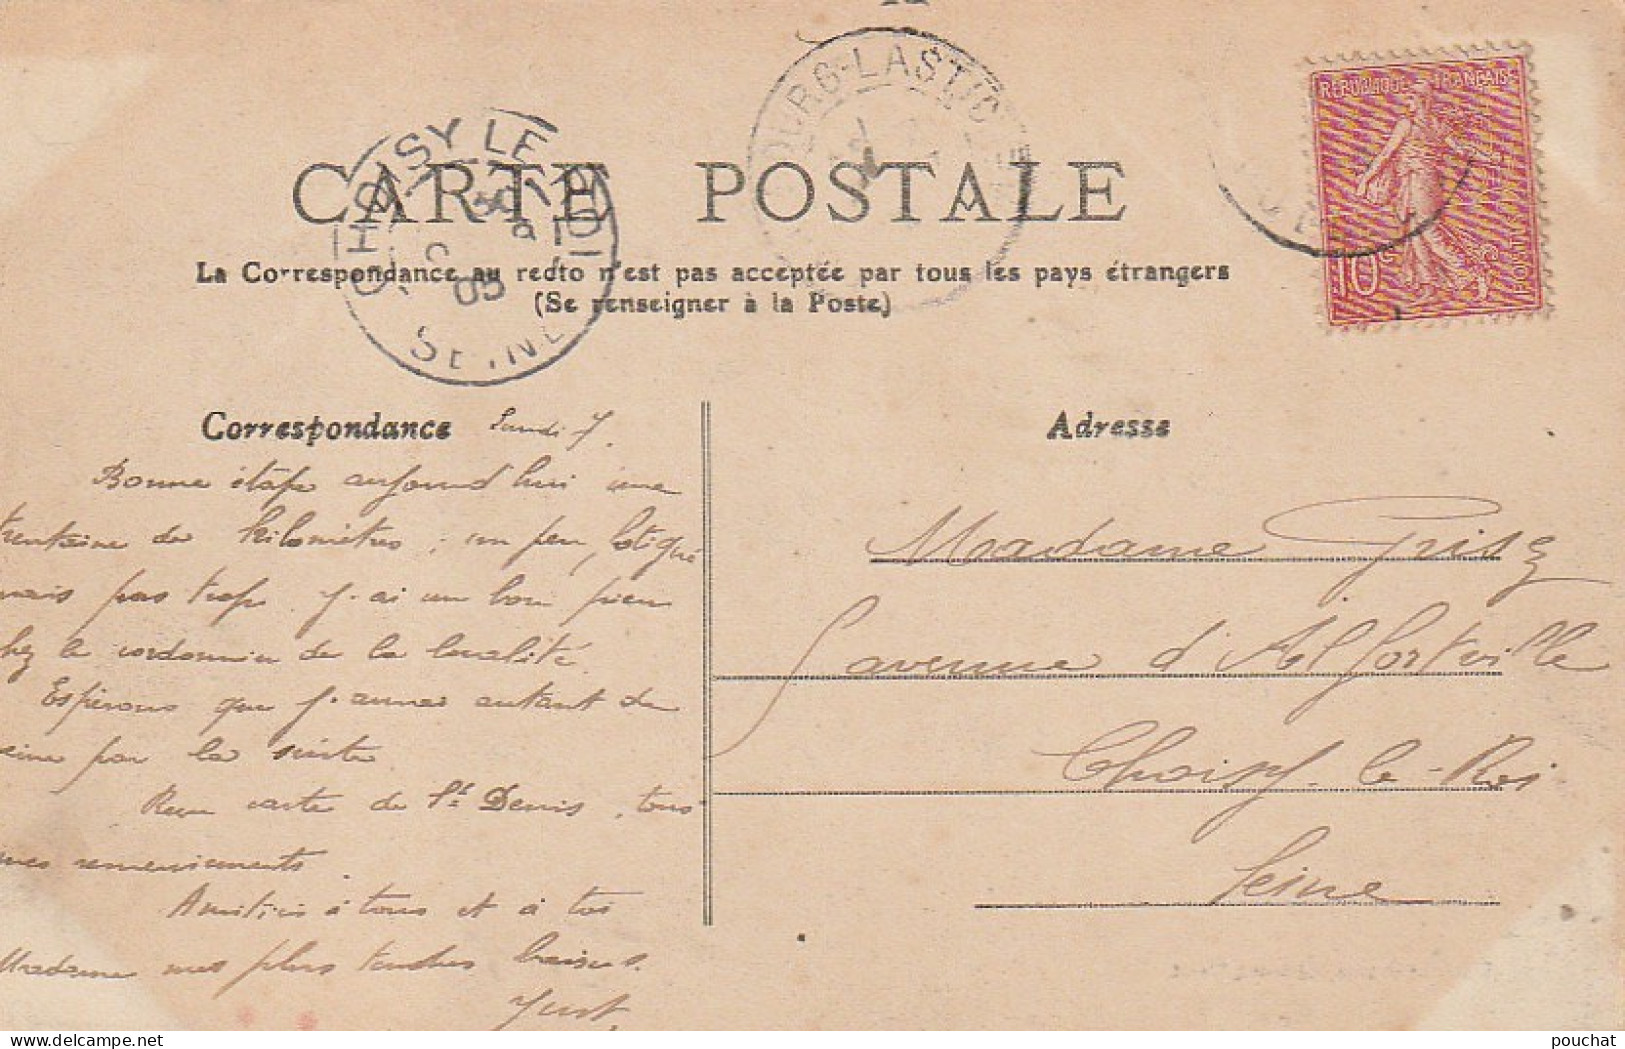 BOURG-LASTIC
RÉPUBLIQUE FRANÇAISE
10c
POSTES
CHOISY LE ROI
30
05
SEINE
CARTE POSTALE
La Correspondance au recto n'est pas acceptée par tous les pays étrangers
(Se renseigner à la Poste)
Correspondance
Lundi 7.
Bonne étape aujourd'hui une
trentaine de kilomètres, un peu fatigué
mais pas trop. J'ai un bon pieu
chez le cordonnier de la localité.
Espérons que j'aurai autant de
veine par la suite
Reçu carte de St Denis, tous
mes remerciements.
Amitiés à tous et à toi
Madame mes plus tendres baisers.
Just.
Adresse
Madame Grisez
5 avenue d'Alfortville
Choisy-le-Roi
Seine
pouchat